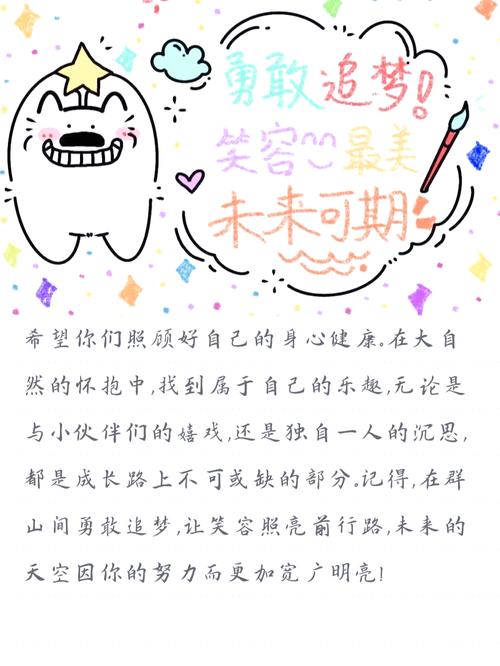 勇敢追梦!
笑容最美
未来可期
希望你们照顾好自己的身心健康。在大自
然的怀抱中,找到属于自己的乐趣,无论是
与小伙伴们的嬉戏,还是独自一人的沉思,
都是成长路上不可或缺的部分。记得,在群
山间勇敢追梦,让笑容照亮前行路,未来的
天空因你的努力而更加宽广明亮!